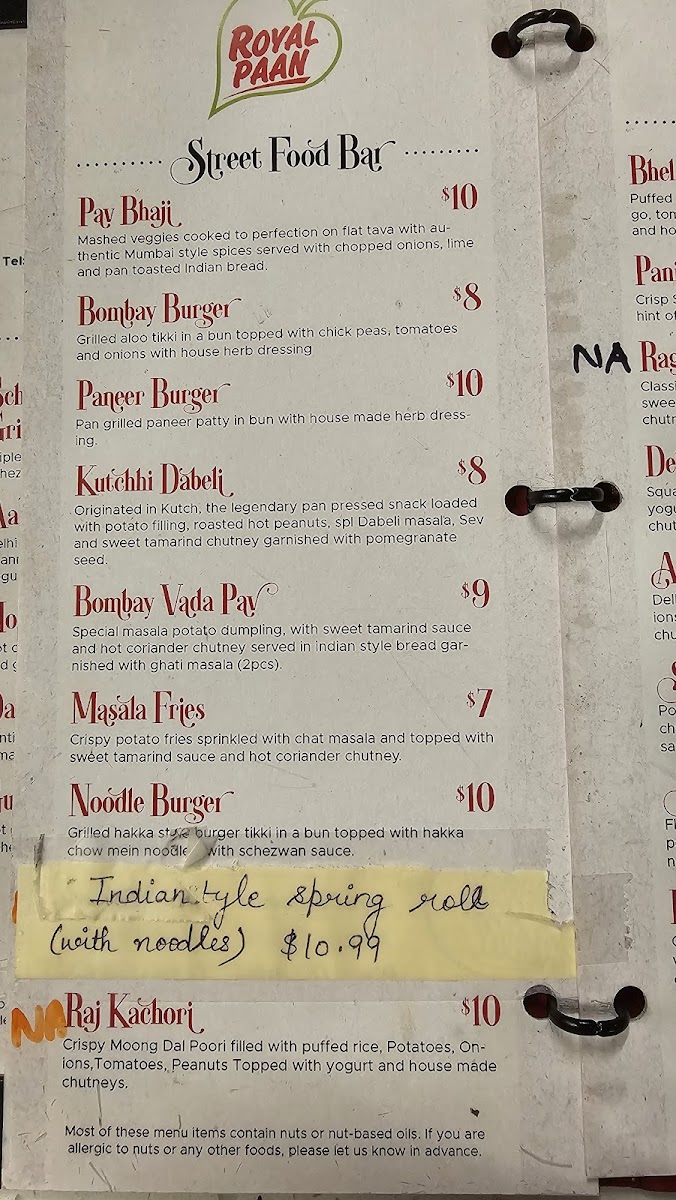 ROYAL
PAAN
Street Food Bar
Pav Bhaji $10
Mashed veggies cooked to perfection on flat tava with au-
thentic Mumbai style spices served with chopped onions, lime
and pan toasted Indian bread.
Bombay Burger $8
Grilled aloo tikki in a bun topped with chick peas, tomatoes
and onions with house herb dressing
Paneer Burger $10
Pan grilled paneer patty in bun with house made herb dress-
ing.
Kutchhi Dabeli $8
Originated in Kutch, the legendary pan pressed snack loaded
with potato filling, roasted hot peanuts, spl Dabeli masala, Sev
and sweet tamarind chutney garnished with pomegranate
seed.
Bombay Vada Pav $9
Special masala potato dumpling, with sweet tamarind sauce
and hot coriander chutney served in indian style bread gar-
nished with ghati masala (2pcs).
Masala Fries $7
Crispy potato fries sprinkled with chat masala and topped with
sweet tamarind sauce and hot coriander chutney.
Noodle Burger $10
Grilled hakka style burger tikki in a bun topped with hakka
chow mein noodle with schezwan sauce.
Indian style spring roll
(with noodles) $10.99
NA Raj Kachori $10
Crispy Moong Dal Poori filled with puffed rice, Potatoes, On-
ions,Tomatoes, Peanuts Topped with yogurt and house made
chutneys.
Most of these menu items contain nuts or nut-based oils. If you are
allergic to nuts or any other foods, please let us know in advance.
Tel:
Bhel
Puffed
and ho
Crisp
hint of
NA